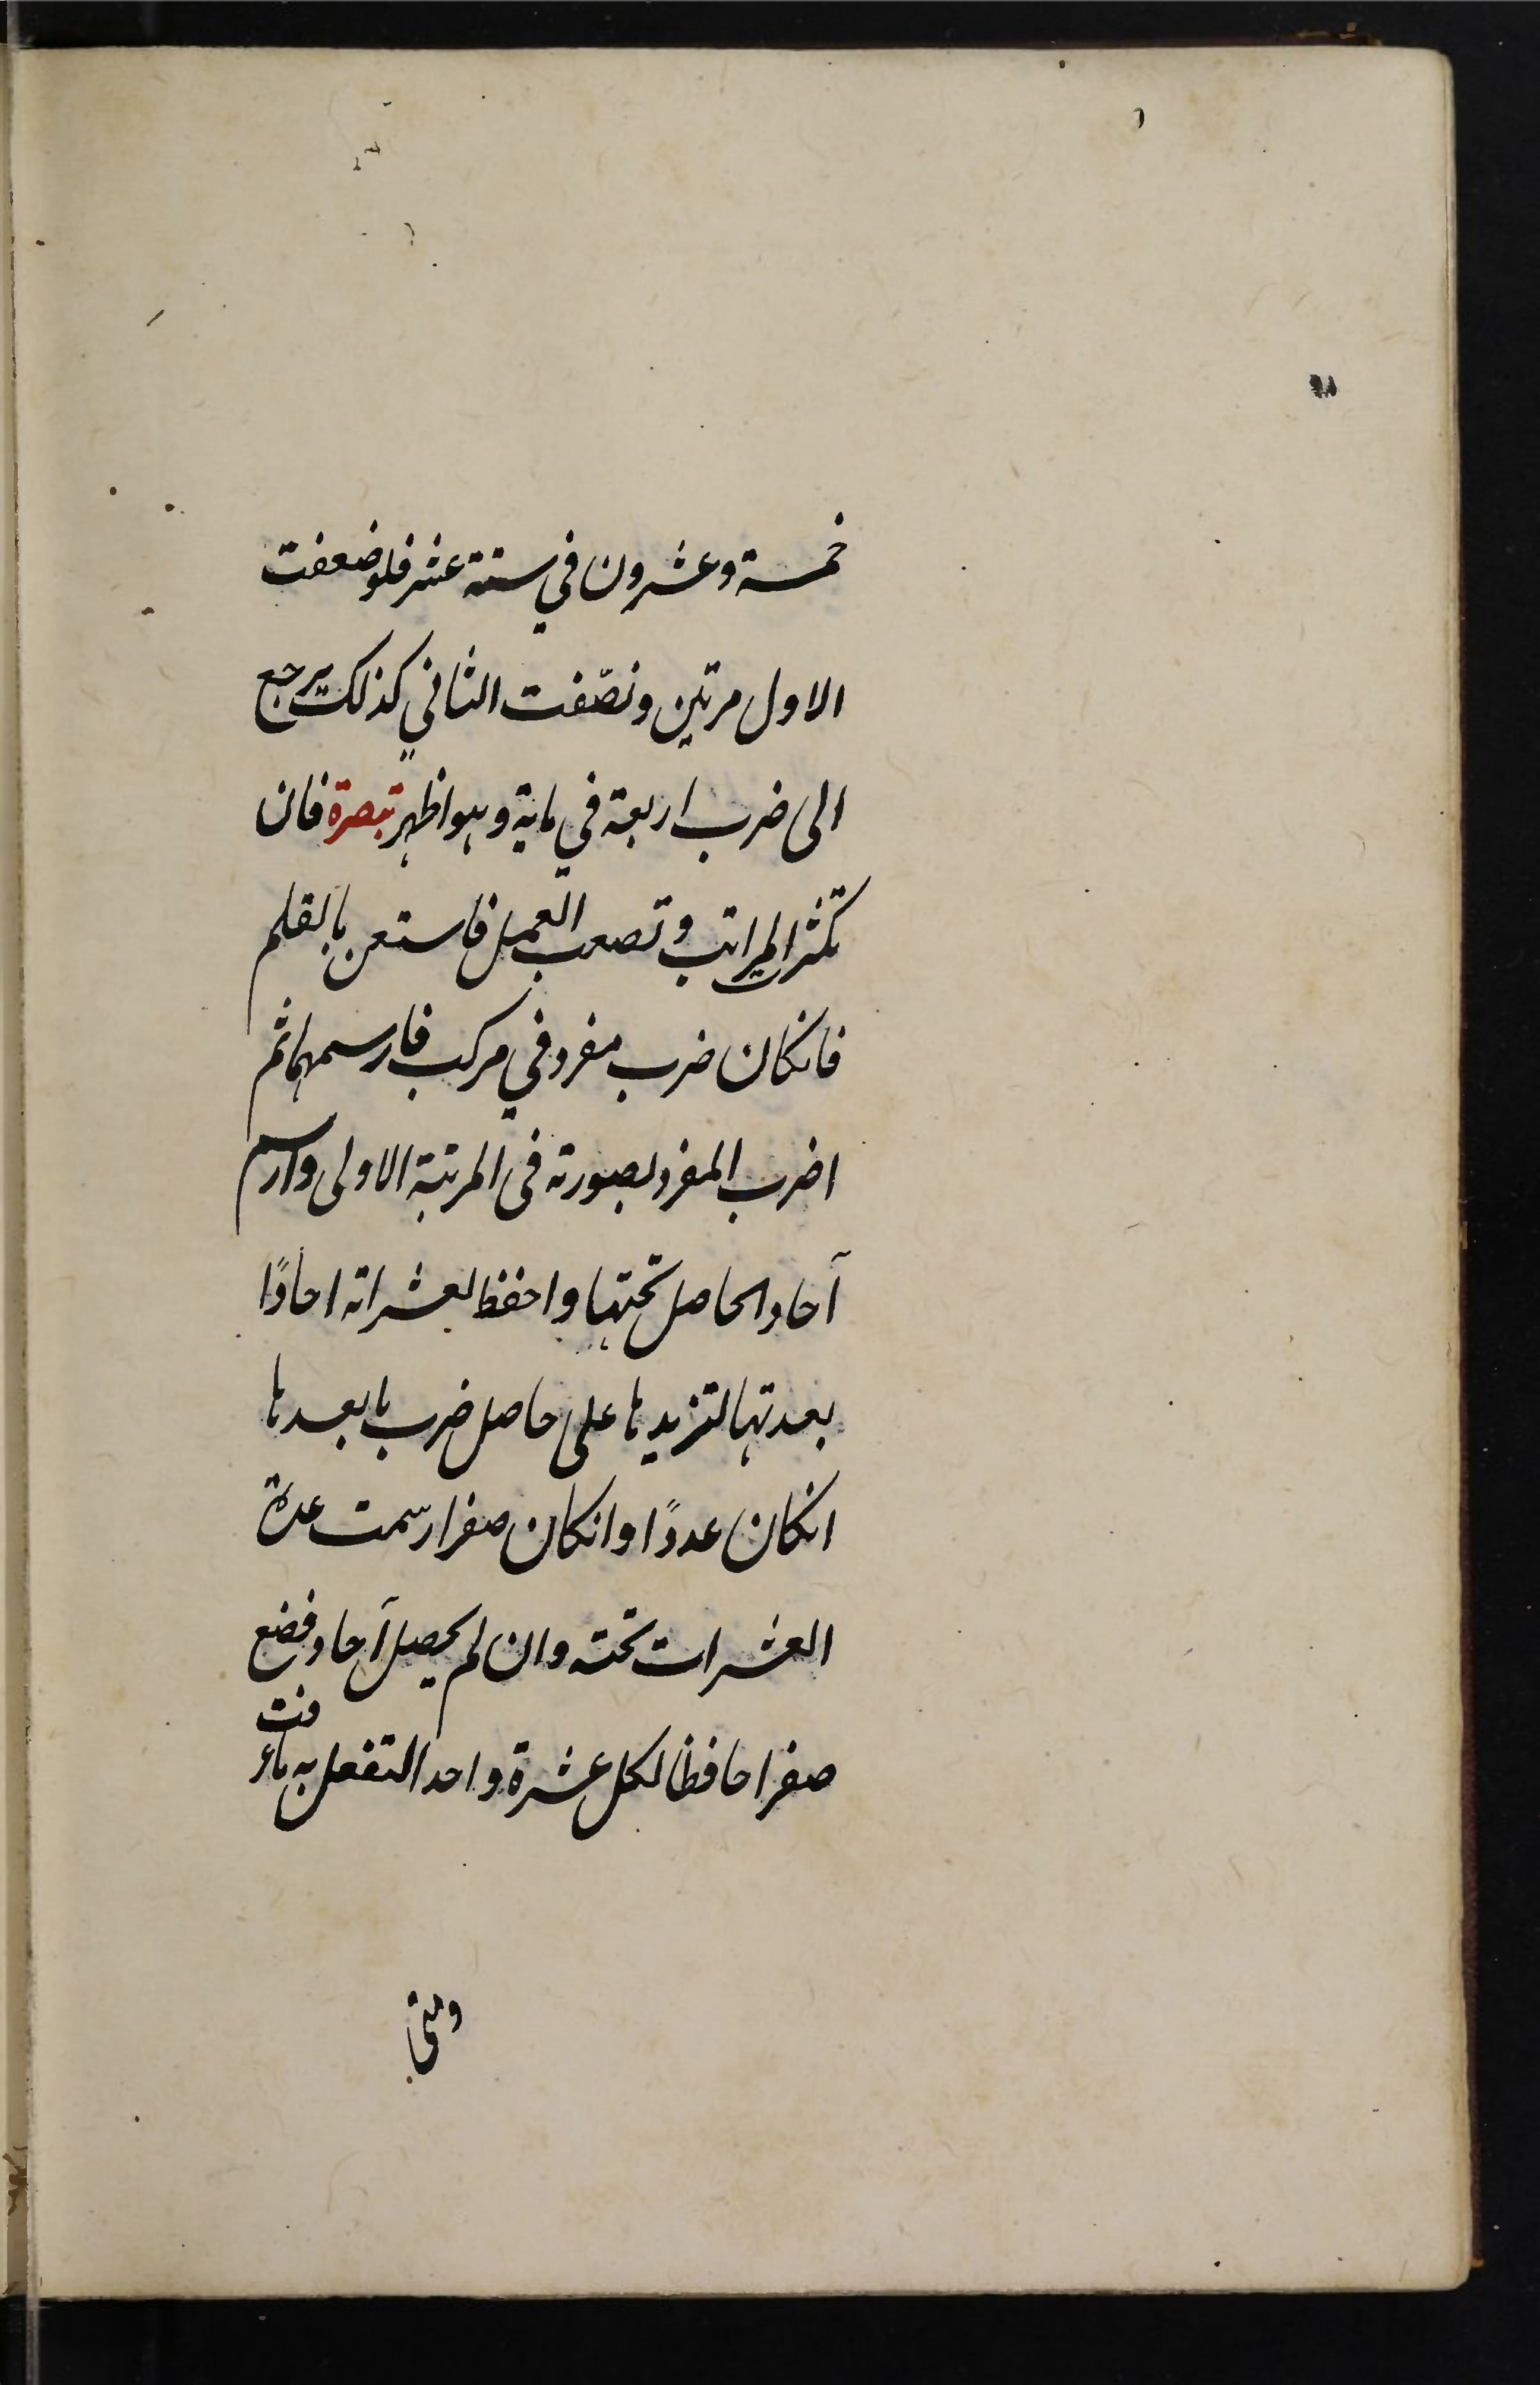 خمسة وعشرون في ستة عشر فلو ضعفت
الاول مرتين ونصّفت الثاني كذلك يرجع
الى ضرب اربعة في ماية وهو اظهر تبصرة فان
تكثر المراتب وتصعب العمل فاستعن بالقلم
فانكان ضرب مفرد في مركب فارسمهما ثم
اضرب المفرد بصورته في المرتبة الاولى وارسم
آحاد الحاصل تحتها واحفظ لعشراته احادًا
بعدتها لتزيدها على حاصل ضرب ما بعدها
انكان عددًا وانكان صفرا رسمت عدة
العشرات تحته وان لم يحصل آحاد فضع
صفرا حافظا لكل عشرة واحدا لتفعل به ما عرفت
ومتى